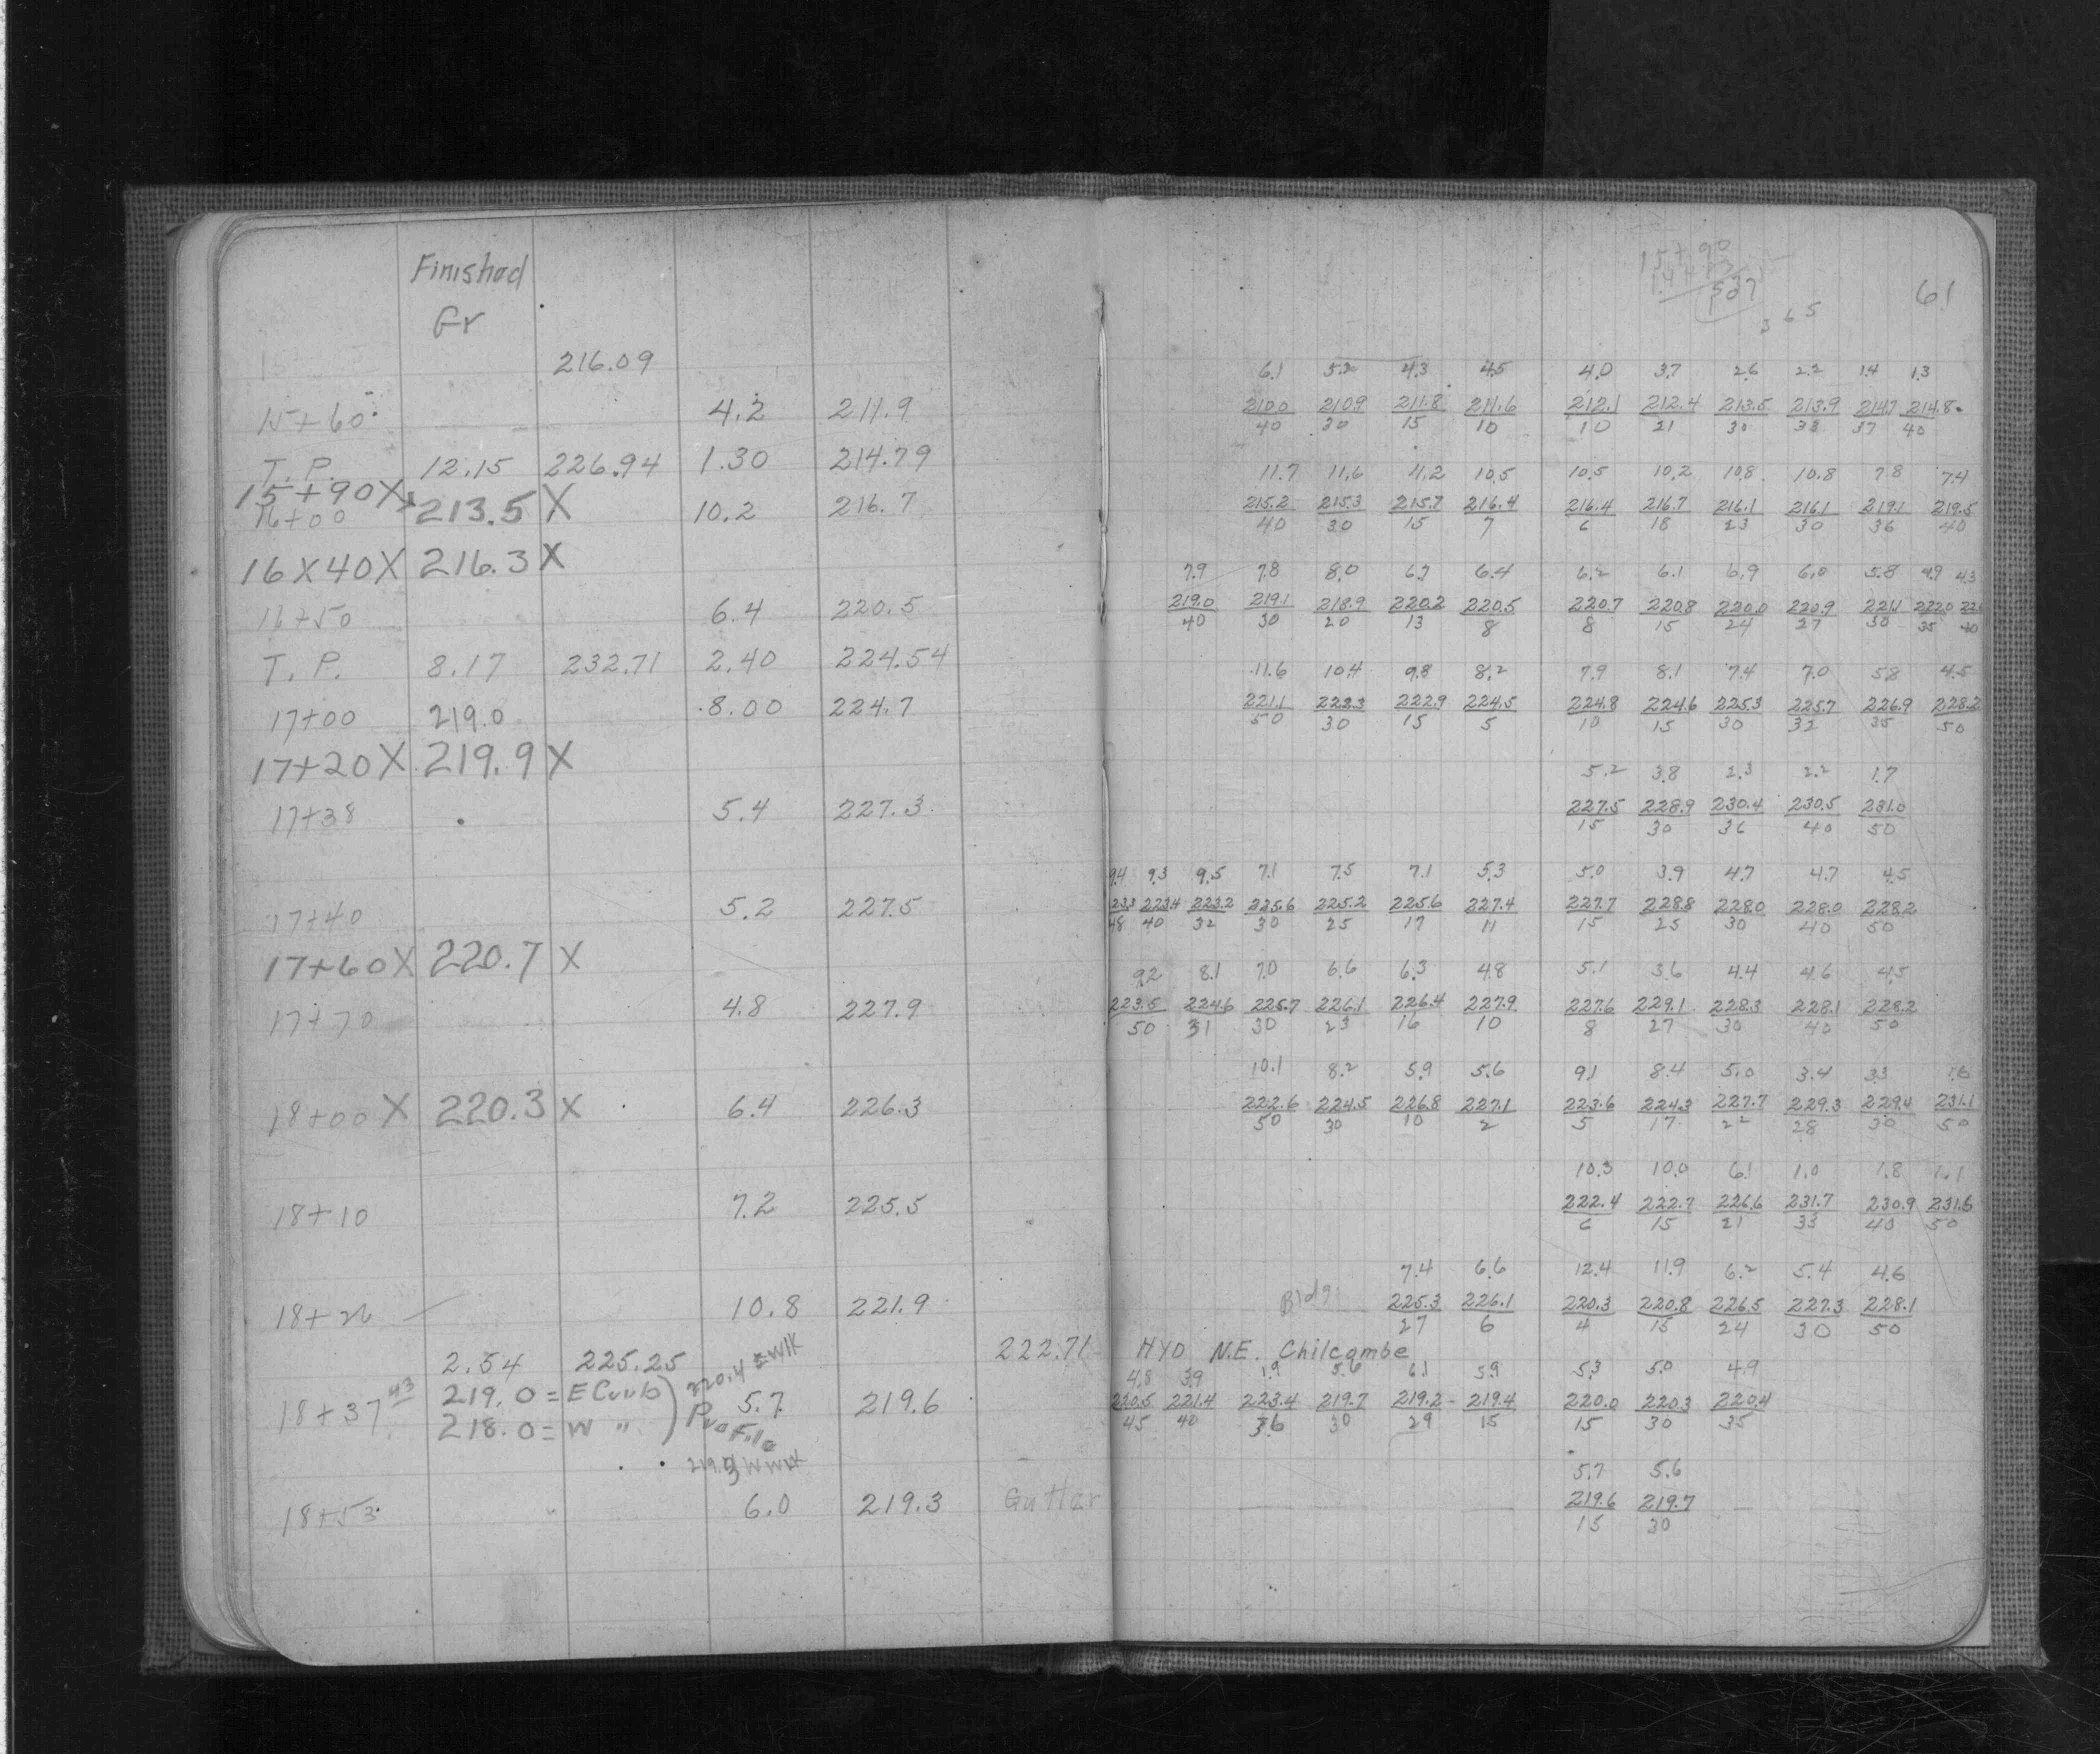 Finished
Gr
216.09
15+60 4.2 211.9
T.P. 12.15 226.94 1.30 214.79
15+90X 213.5 X
16+00 10.2 216.7
16X40X 216.3 X
16+50 6.4 220.5
T.P. 8.17 232.71 2.40 224.54
17+00 219.0 8.00 224.7
17+20X 219.9 X
17+38 5.4 227.3
17+40 5.2 227.5
17+60X 220.7 X
17+70 4.8 227.9
18+00 X 220.3 X 6.4 226.3
18+10 7.2 225.5
18+26 10.8 221.9
222.71
2.54 225.25 220.4 = E Wlk
219.0 = E Curb
18+37 43 5.7 219.6
218.0 = W " Profile
219.3 W Wlk
18+53 6.0 219.3 Gutter
15+90
507
365
61
6.1 5.2 4.3 4.5 4.0 3.7 2.6 2.2 1.4 1.3
210.0 210.9 211.8 211.6 212.1 212.4 213.5 213.9 214.7 214.8
40 30 15 10 10 21 30 33 37 40
11.7 11.6 11.2 10.5 10.5 10.2 10.8 10.8 7.8 7.4
215.2 215.3 215.7 216.4 216.4 216.7 216.1 216.1 219.1 219.5
40 30 15 7 6 18 23 30 36 40
7.9 7.8 8.0 6.7 6.4 6.2 6.1 6.9 6.0 5.8 4.9 4.3
219.0 219.1 218.9 220.2 220.5 220.7 220.8 220.0 220.9 221.1 222.0
40 30 20 13 8 8 15 24 27 30 35 40
11.6 10.4 9.8 8.2 7.9 8.1 7.4 7.0 5.8 4.5
221.1 222.3 222.9 224.5 224.8 224.6 225.3 225.7 226.9 228.2
50 30 15 5 10 15 30 32 35 50
5.2 3.8 2.3 2.2 1.7
227.5 228.9 230.4 230.5 231.0
15 30 36 40 50
9.4 9.3 9.5 7.1 7.5 7.1 5.3 5.0 3.9 4.7 4.7 4.5
223.3 223.4 223.2 225.6 225.2 225.6 227.4 227.7 228.8 228.0 228.0 228.2
48 40 32 30 25 17 11 15 25 30 40 50
9.2 8.1 7.0 6.6 6.3 4.8 5.1 3.6 4.4 4.6 4.5
223.5 224.6 225.7 226.1 226.4 227.9 227.6 229.1 228.3 228.1 228.2
50 31 30 23 16 10 8 27 30 40 50
10.1 8.2 5.9 5.6 9.1 8.4 5.0 3.4 3.3 1.6
222.6 224.5 226.8 227.1 223.6 224.3 227.7 229.3 229.4 231.1
50 30 10 2 5 17 22 28 30 50
10.3 10.0 6.1 1.0 1.8 1.1
222.4 222.7 226.6 231.7 230.9 231.6
6 15 21 33 40 50
7.4 6.6 12.4 11.9 6.2 5.4 4.6
Bldg. 225.3 226.1 220.3 220.8 226.5 227.3 228.1
27 6 4 15 24 30 50
HYD N.E. Chilcombe
4.8 3.9 1.9 5.6 6.1 5.9 5.3 5.0 4.9
220.5 221.4 223.4 219.7 219.2 219.4 220.0 220.3 220.4
45 40 36 30 29 15 15 30 35
5.7 5.6
219.6 219.7
15 30